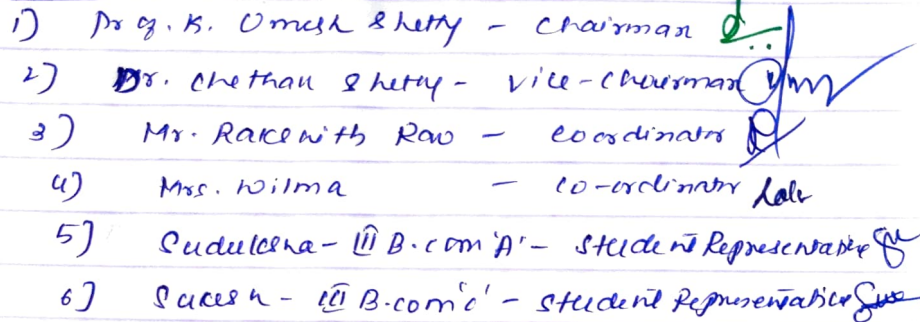 1) Prof. K. Umesh Shetty - Chairman
2) Dr. Chethan Shetty - Vice-Chairman
3) Mr. Rakewith Rao - Coordinator
4) Mrs. Wilma - Co-ordinator
5) Suduksha - III B.com 'A' - Student Representative
6) - III B.com 'c' - Student Representative